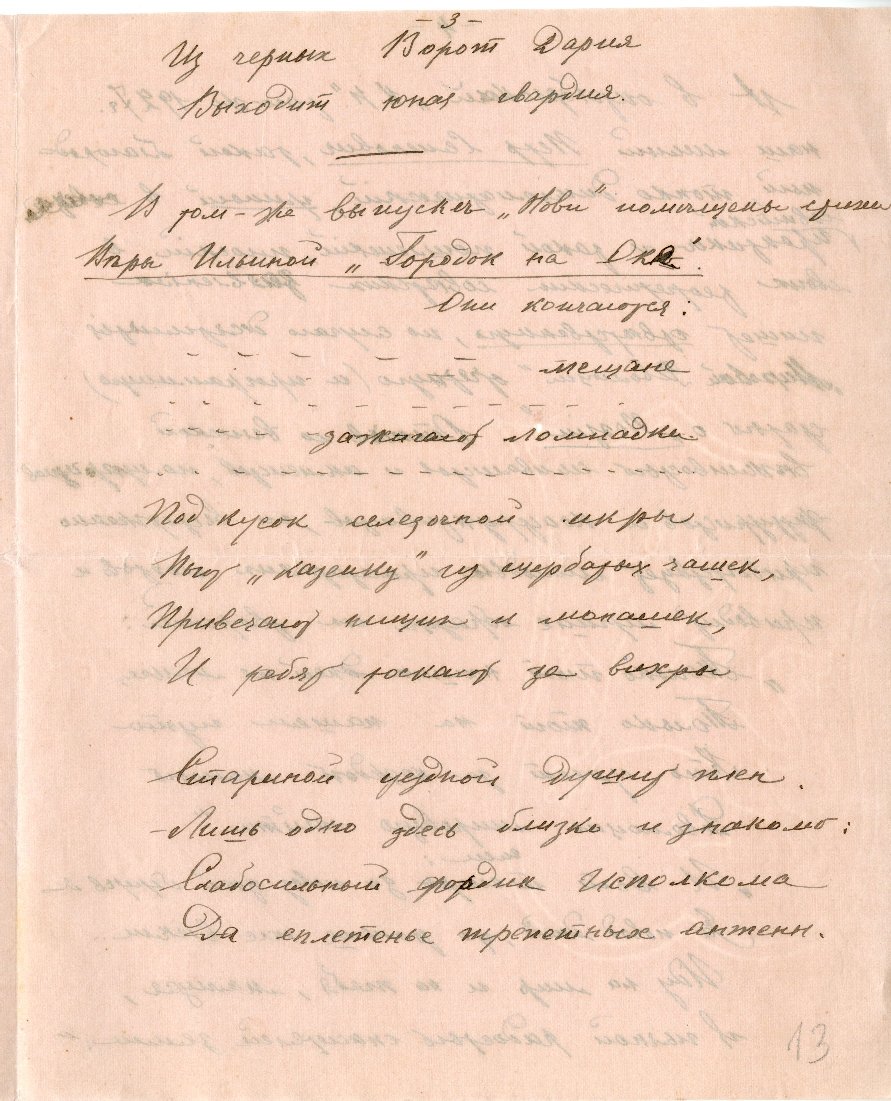 -3-
Из черных Ворот Дария
Выходит юная гвардия.
В том-же выпуске „Нови" помещены стихи
Веры Ильиной „Городок на Оке".
Они кончаются:
мещане
зажигают лампадки
Под кусок селедочной икры
Пьют „казенку" из щербатых чашек,
Привечают нищих и монашек,
И ребят таскают за вихры
Стариной уездной душит плен
Лишь одно здесь близко и знакомо:
Слабосильный фордик Исполкома
Да сплетенье трепетных антенн.
13